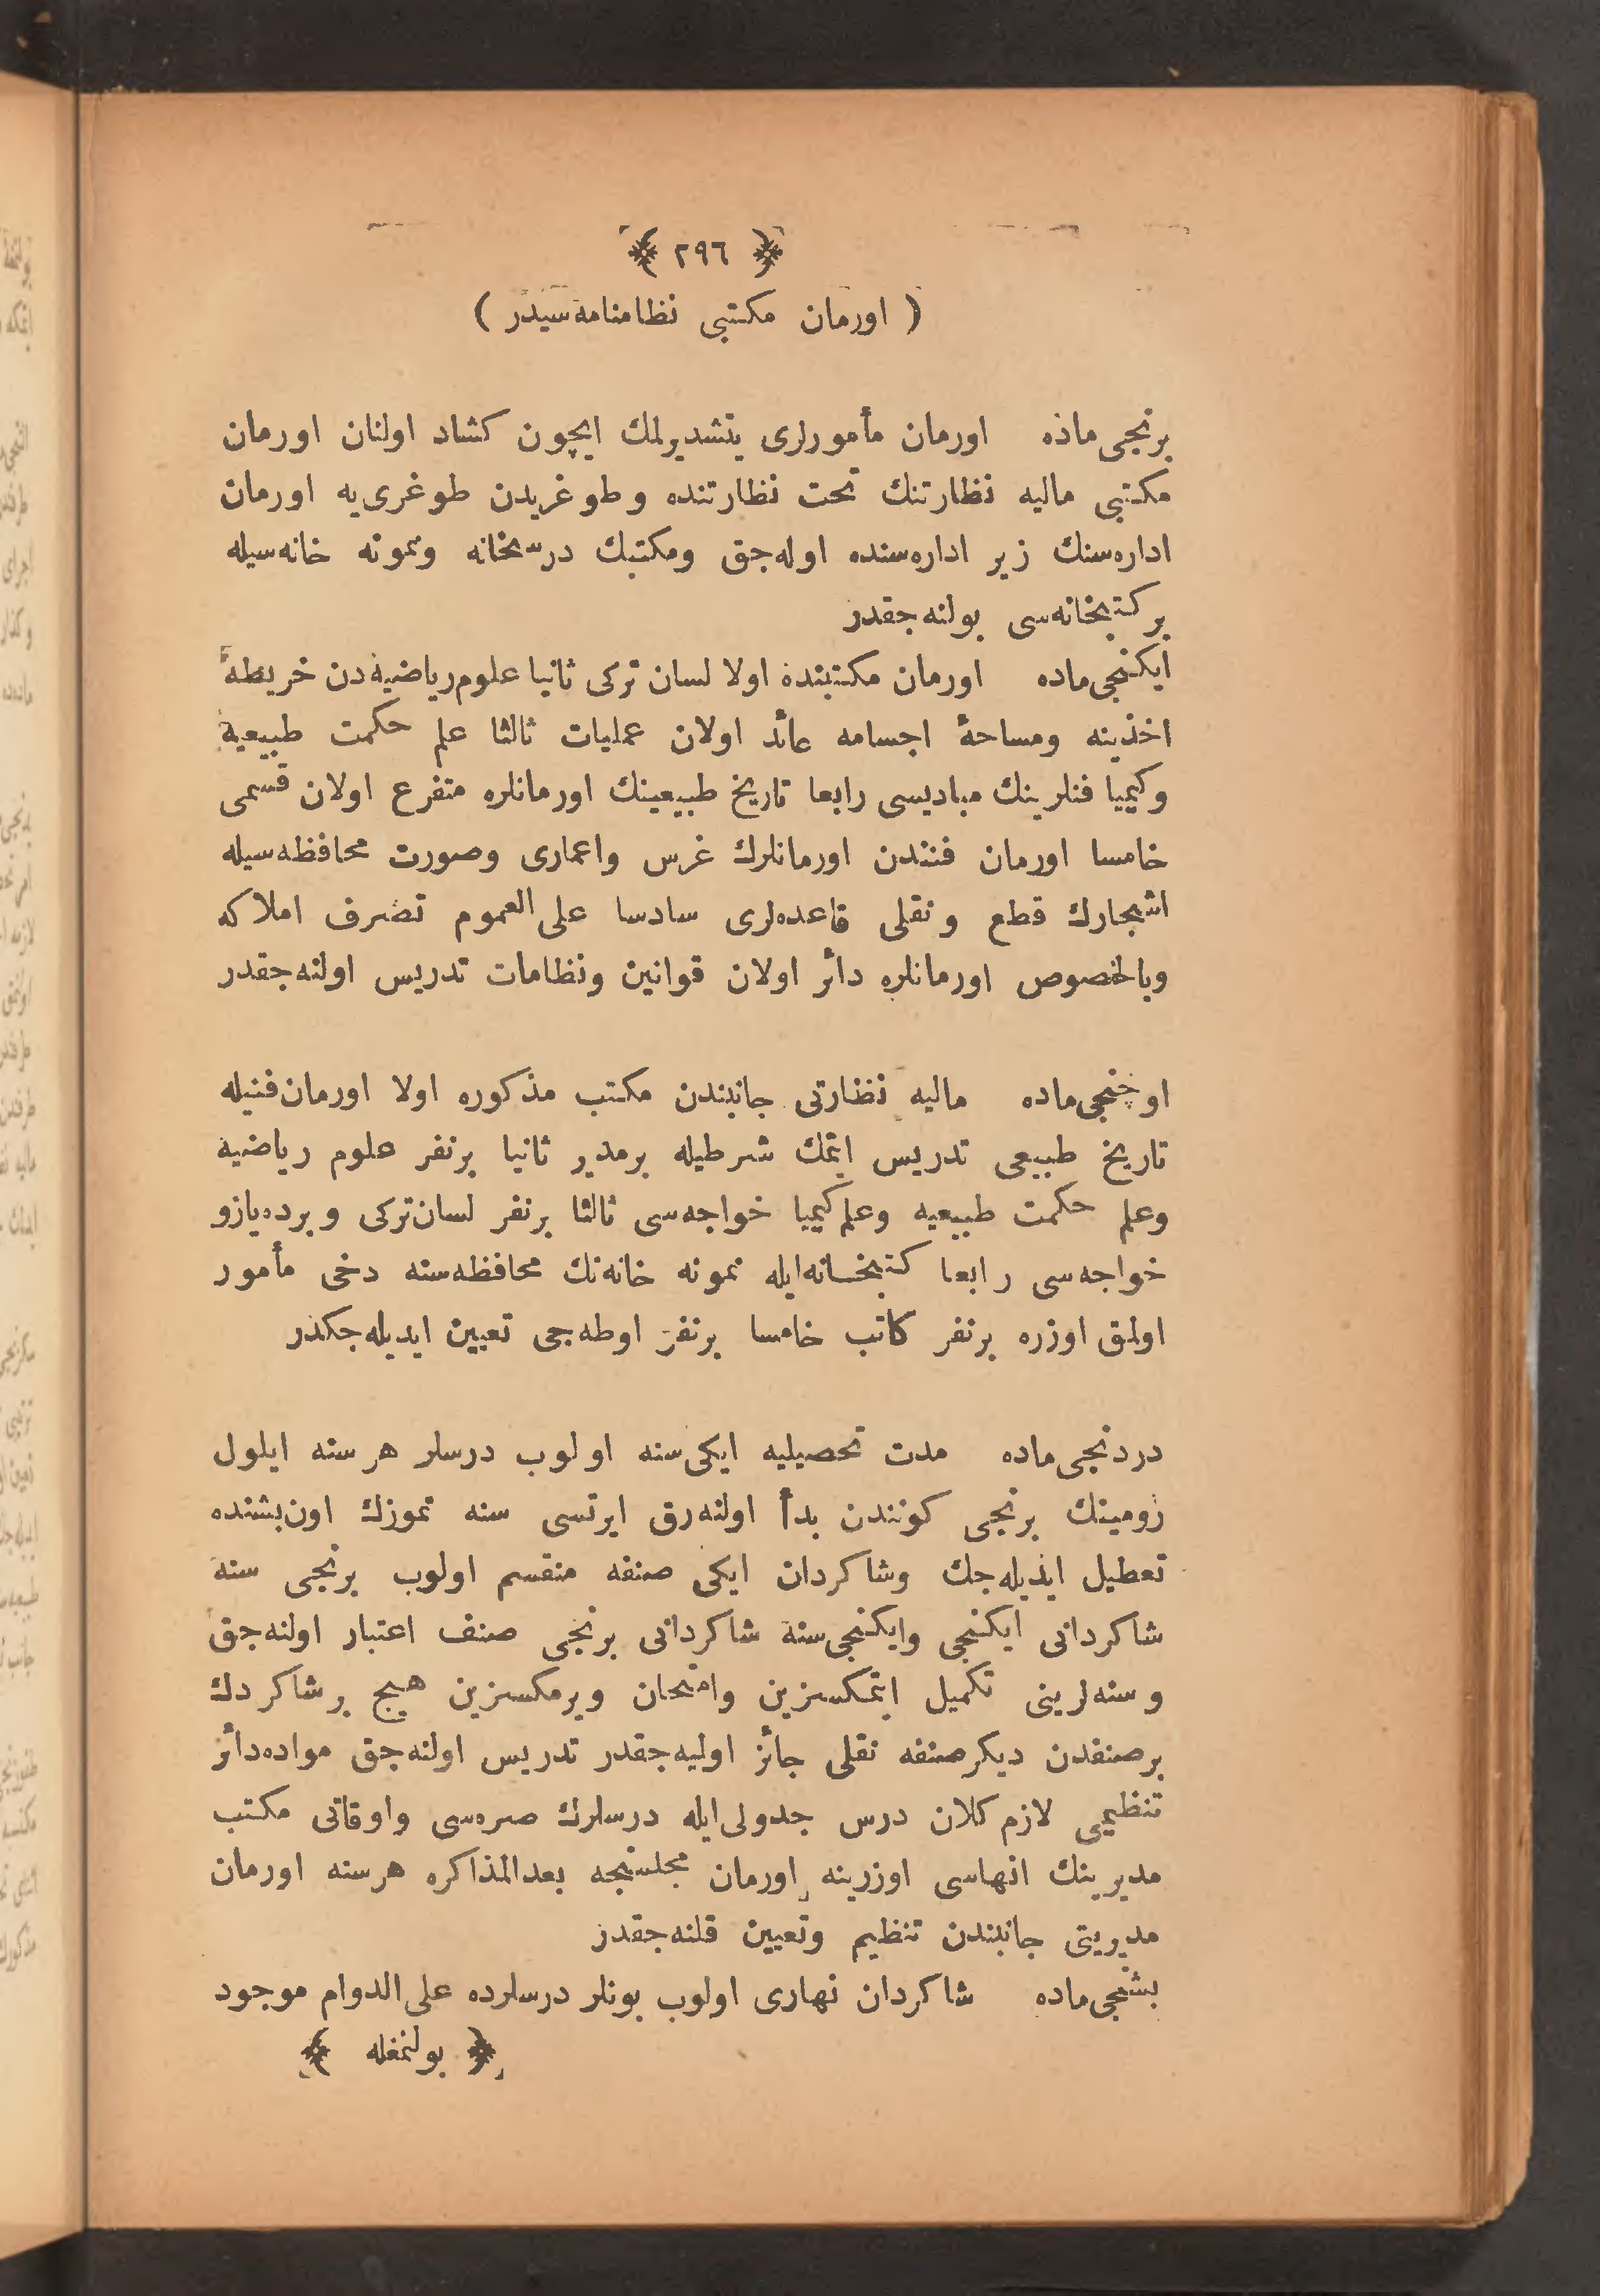 ٢٩٦
( اورمان مكتبی نظامنامه‌سیدر )
برنجی ماده اورمان مأمورلری یتشدیرلمك ایچون كشاد اولنان اورمان
مكتبی مالیه نظارتنك تحت نظارتنده و طوغریدن طوغری‌یه اورمان
اداره‌سنك زیر اداره‌سنده اوله‌جق ومكتبك درسخانه ونمونه خانه‌سیله
بر كتبخانه‌سی بولنه‌جقدر
ایكنجی ماده اورمان مكتبنده اولا لسان تركی ثانیا علوم ریاضیه‌دن خریطه
اخذینه ومساحهٔ اجسامه عائد اولان عملیات ثالثا علم حكمت طبیعیه
وكیمیا فنلرینك مبادیسی رابعا تاریخ طبیعینك اورمانلره متفرع اولان قسمی
خامسا اورمان فنندن اورمانلرك غرس واعماری وصورت محافظه‌سیله
اشجارك قطع ونقلی قاعده‌لری سادسا علی العموم تصرف املاكه
وبالخصوص اورمانلره دائر اولان قوانین ونظامات تدریس اولنه‌جقدر
اوچنجی ماده مالیه نظارتی جانبندن مكتب مذكوره اولا اورمان فنیله
تاریخ طبیعی تدریس ایتمك شرطیله برمدیر ثانیا برنفر علوم ریاضیه
وعلم حكمت طبیعیه وعلم كیمیا خواجه‌سی ثالثا برنفر لسان تركی وبرده یازو
خواجه‌سی رابعا كتبخانه ایله نمونه خانه‌نك محافظه‌سنه دخی مأمور
اولمق اوزره برنفر كاتب خامسا برنفر اوطه‌جی تعیین ایدیله‌جكدر
دردنجی ماده مدت تحصیلیه ایكی سنه اولوب درسلر هر سنه ایلول
رومینك برنجی كونندن بدأ اولنه‌رق ایرتسی سنه تموزك اون بشنده
تعطیل ایدیله‌جك وشاكردان ایكی صنفه منقسم اولوب برنجی سنه
شاكردانی ایكنجی وایكنجی سنه شاكردانی برنجی صنف اعتبار اولنه‌جق
وسنه‌لرینی تكمیل ایتمكسزین وامتحان ویرمكسزین هیچ بر شاكردك
بر صنفدن دیكر صنفه نقلی جائز اولیه‌جقدر تدریس اولنه‌جق مواده دائر
تنظیمی لازم كلان درس جدولی ایله درسلرك صره‌سی واوقاتی مكتب
مدیرینك انهاسی اوزرینه اورمان مجلسنجه بعدالمذاكره هرسنه اورمان
مدیریتی جانبندن تنظیم وتعیین قلنه‌جقدر
بشنجی ماده شاكردان نهاری اولوب بونلر درسلرده علی الدوام موجود
بولنمغله